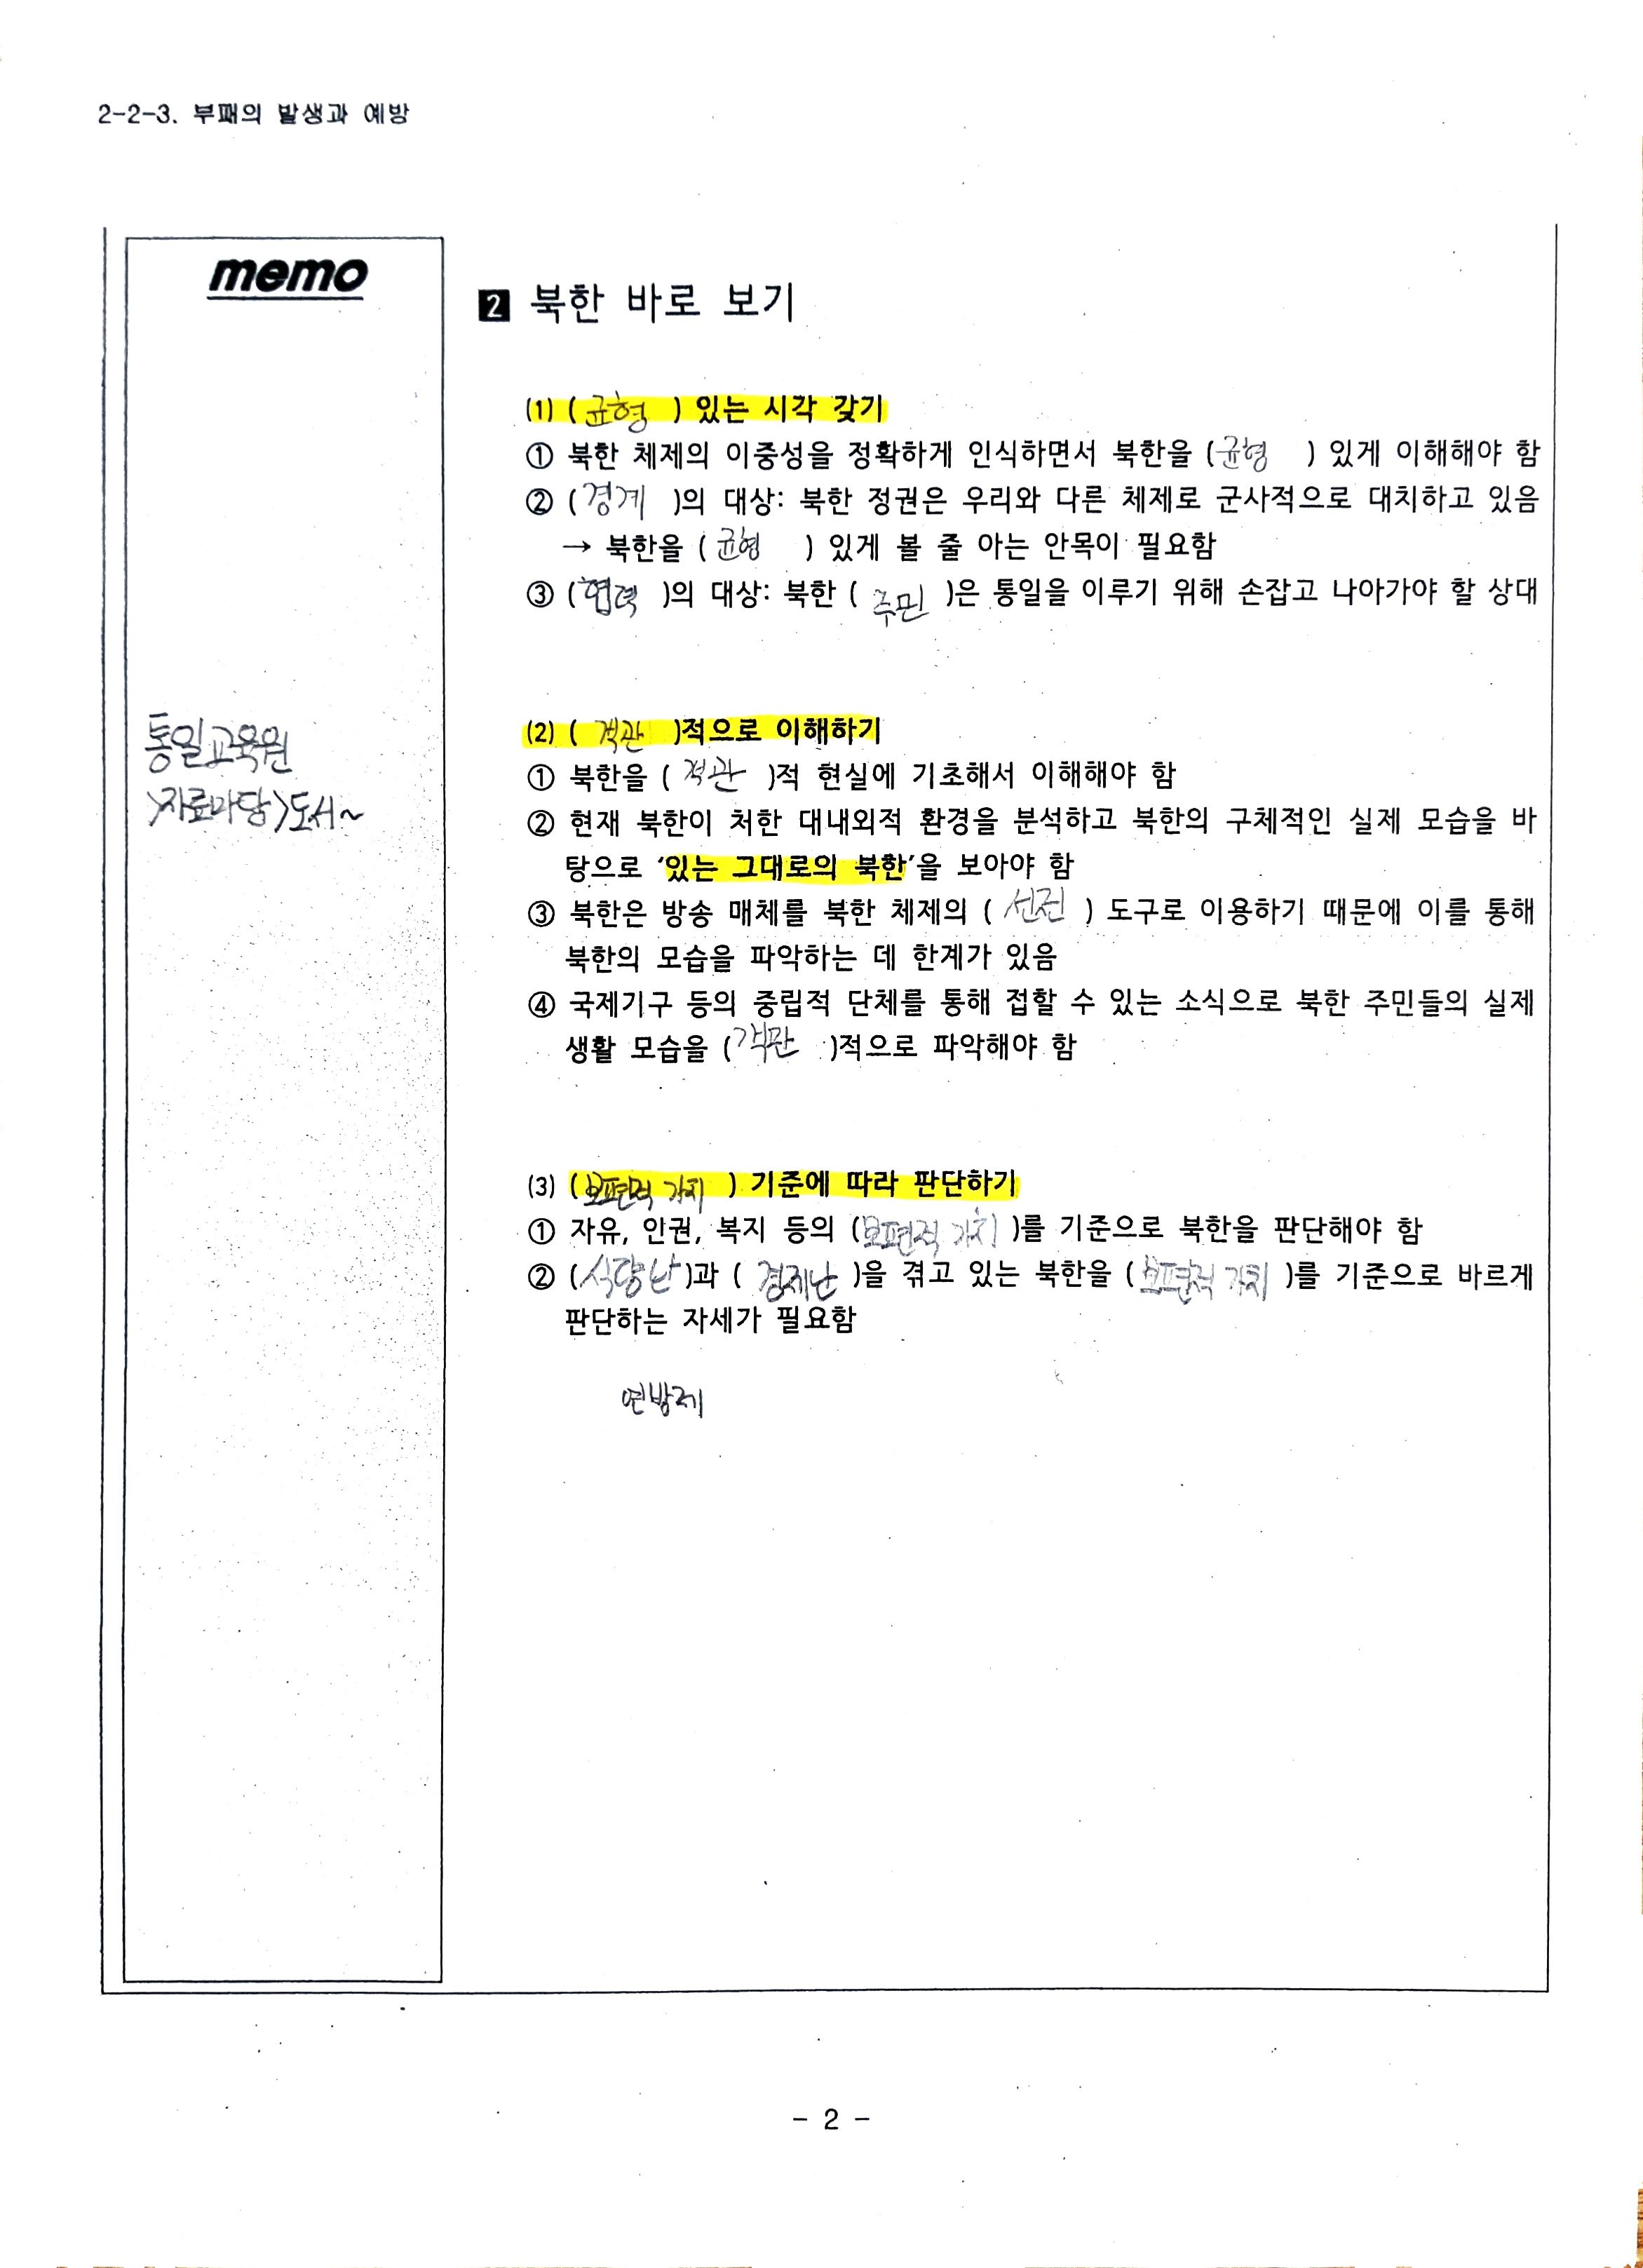 2-2-3. 부패의 발생과 예방
memo
2 북한 바로 보기
(1) ( 균형 ) 있는 시각 갖기
① 북한 체제의 이중성을 정확하게 인식하면서 북한을 (균형 ) 있게 이해해야 함
② (경계 )의 대상: 북한 정권은 우리와 다른 체제로 군사적으로 대치하고 있음
→ 북한을 ( 균형 ) 있게 볼 줄 아는 안목이 필요함
③ (협력 )의 대상: 북한 ( 주민 )은 통일을 이루기 위해 손잡고 나아가야 할 상대
통일교육원
>자료마당>도서~
(2) ( 객관 )적으로 이해하기
① 북한을 ( 객관 )적 현실에 기초해서 이해해야 함
② 현재 북한이 처한 대내외적 환경을 분석하고 북한의 구체적인 실제 모습을 바
탕으로 '있는 그대로의 북한'을 보아야 함
③ 북한은 방송 매체를 북한 체제의 ( 선전 ) 도구로 이용하기 때문에 이를 통해
북한의 모습을 파악하는 데 한계가 있음
④ 국제기구 등의 중립적 단체를 통해 접할 수 있는 소식으로 북한 주민들의 실제
생활 모습을 (객관 )적으로 파악해야 함
(3) (보편적 가치 ) 기준에 따라 판단하기
① 자유, 인권, 복지 등의 (보편적 가치 )를 기준으로 북한을 판단해야 함
② (식량난)과 ( 경제난 )을 겪고 있는 북한을 ( 보편적 가치 )를 기준으로 바르게
판단하는 자세가 필요함
연방제
- 2 -